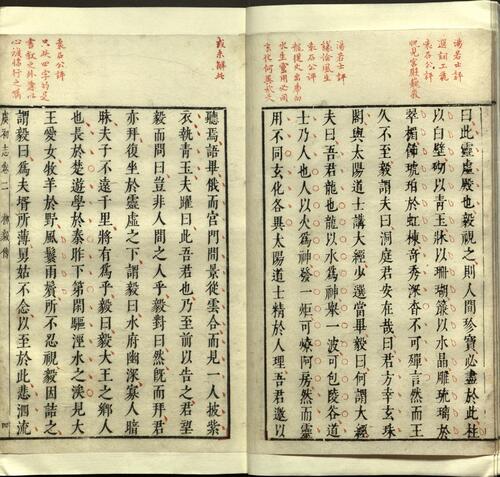 湯若士評
袁石公評
曰此靈虛殿也毅視之則人間珍寶必盡於此柱
以白壁砌以青玉牀以珊瑚簾以水晶雕琉璃於
翠楣飾琥珀於虹棟奇秀深杳不可殫言然而王
久不至毅謂夫曰洞庭君安在哉曰君方幸玄珠
湯若士評
議論風生
袁石公評
水生靈用必同
閣與太陽道士講大經少選當畢毅曰何謂大經
夫曰吾君龍也龍以水為神舉一波可包陵谷道
士乃人也人以火為神發一炬可燎阿房然而靈
用不同玄化各異太陽道士精於人理吾君邀以
聽焉語畢俄而宮門闢景從雲合而見一人披紫
衣執青玉夫躍曰此吾君也乃至前以告之君望
毅而問曰豈非人間之人乎毅對曰然既而拜君
亦拜復坐於靈虛之下謂毅曰水府幽深寡人暗
昧夫子不遠千里將有為乎毅曰毅大王之鄉人
也長於楚遊學於秦昨下第閒驅涇水之涘見大
袁石公評
只此四字的是
王愛女牧羊於野風鬟雨鬢所不忍視毅因詰之
謂毅曰為夫壻所薄舅姑不念以至於此悲泗流
虞初志卷二
柳毅傳
四